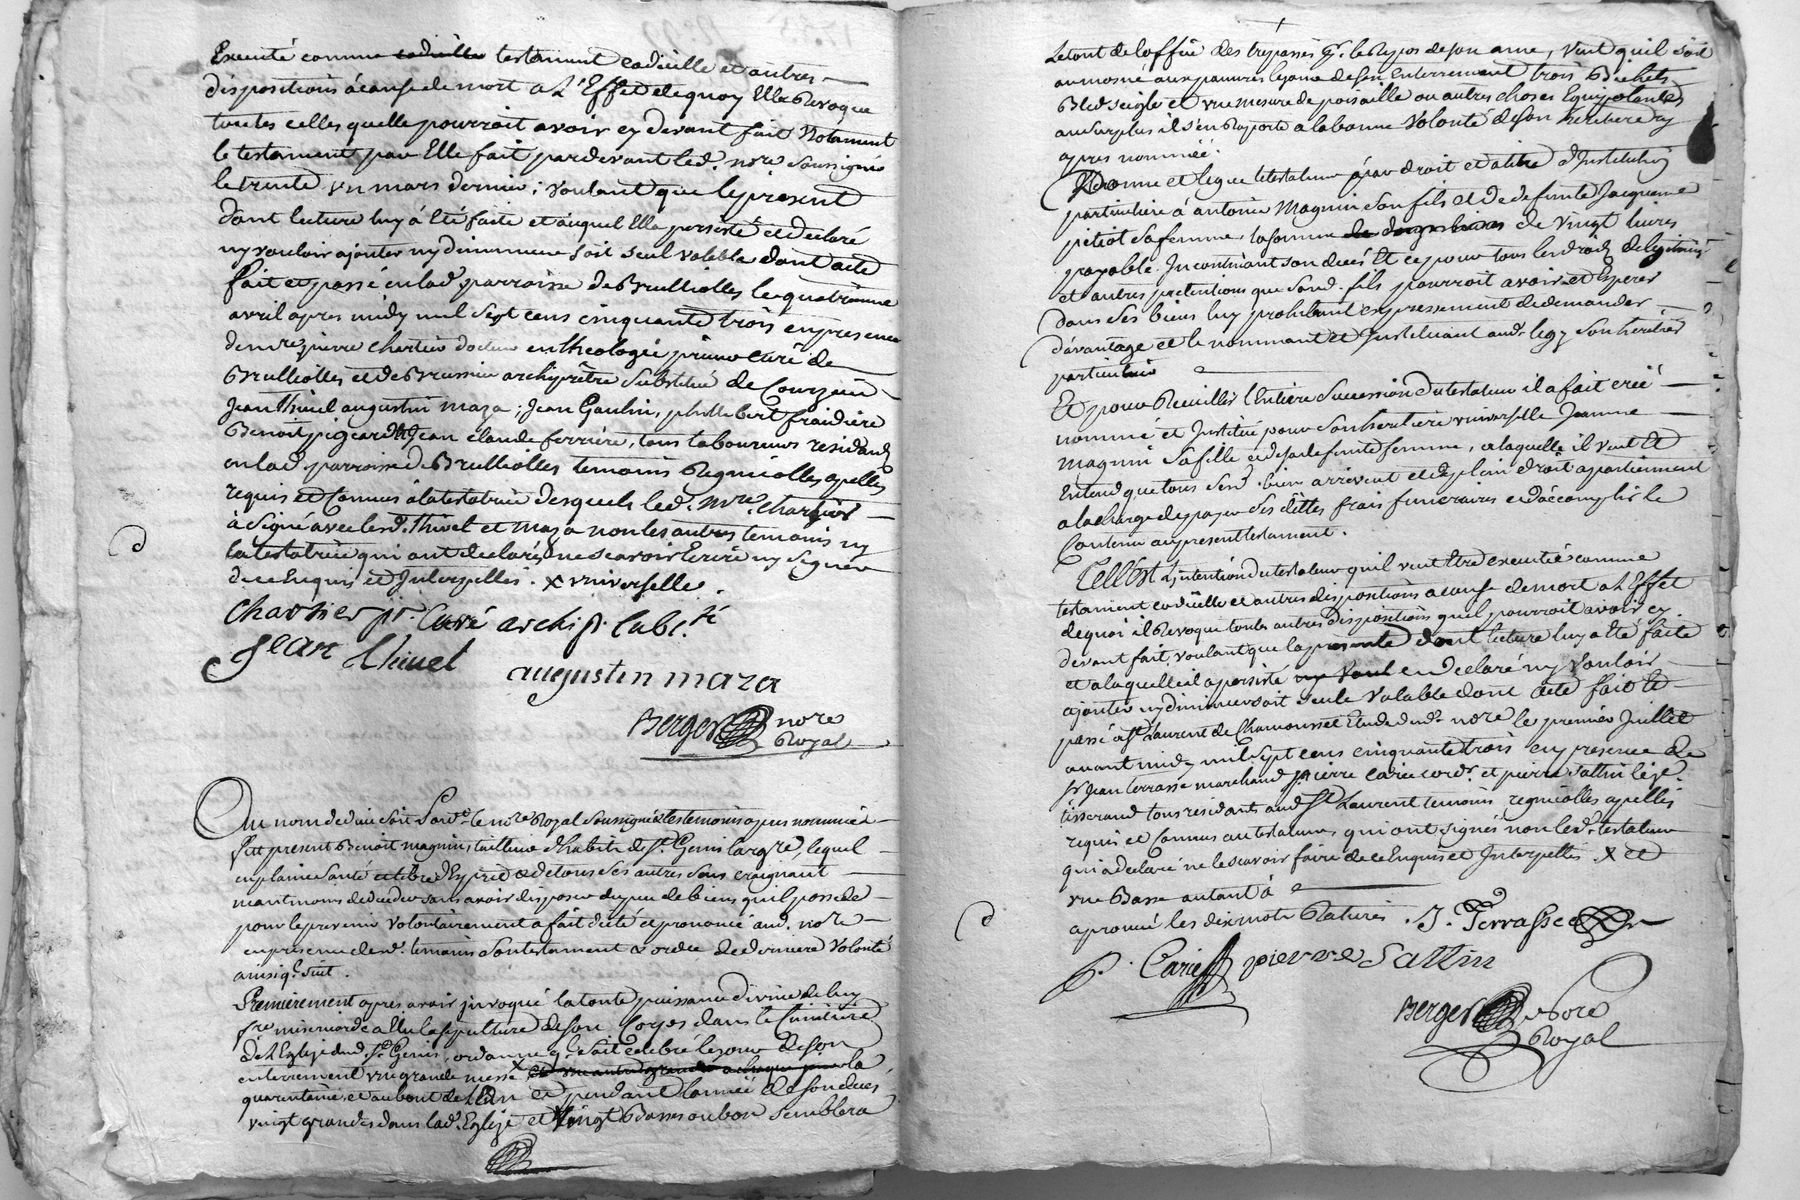 Executé comme codicille testament codicille et autres
dispositions à cause de mort a L'Effet de quoy Elle Revoque
toutes celles quelle pourroit avoir cy devant fait Notament
le testament par Elle fait pardevant led. nore soussigné
le trente un mars dernier; voulant que le present
dont lecture luy à Eté faite et auquel Ella persisté et declaré
ny vouloir ajouter ny diminuer soit seul valable dont acte
fait et passé en lad. parroisse de Brulliolles le quatrieme
avril apres midy mil sept cens cinquante trois en presence
de mre pierre Chartier docteur en theologie prieur curé de
Brulliolles et de Brussieu archiprêtre substitué de Courzieu
Jean thivel augustin maza; Jean Gaulin, philebert fraidiere
Benoit pigeard & Jean claude ferriere, tous laboureurs residants
en lad. parroisse de Brulliolles temoins Regnicolles apellés
requis et Connus à la testatrice desquels led. Mre. Chartier
à signé avec lesd. thivel et maza non les autres temoins ny
la testatrice qui ont declaré ne scavoir Ecrire ny signer
de ce Enquis et Interpellés. x universelle.
Chartier pr. Curé archip. subst.
Jean thivel
augustin maza
Berger nore
Royal
Au nom de dieu soit Par devt. le nore Royal soussigné & les temoins apres nommés
fut present Benoit magnin, tailleur d'habits de St. Genis largre, lequel
en pleine santé et libre d'Esprit et de tous ses autres sens craignant
neantmoins de deceder sans avoir disposer du peu de biens qu'il possede
pour le prevenir volontairement a fait dicté et prononcé aud. nore
en presence desd. temoins son testament & ordre de derniere volonté
ainsi q. suit.
Premierement apres avoir invoqué la toute puissance divine de luy
fre misericorde a Elu la sepulture de son Corps dans le Cimitière
de L'Eglize dud. St. Genis, ordonne q. soit celebré le jour de son
enterrement une grande messe x et une autre grande a chaque jour la
quarantaine, et au bout de L'an et pendant l'année de son deces
vingt grandes dans lad. Eglize et Vingt Basses ou bon semblera
Le tout de l'office des trepassés pr. le Repos de son ame, veut qu'il soit
aumosné aux pauvres le jour de son Enterrement trois Bichets
Bled seigle et une mesure de poisaille ou autres choses Equipolantes
au surplus il s'en Raporte a la bonne volonté de son heritiere cy
apres nommée.
Donne et legue le testateur par droit et a titre d'Institution
particuliere à antoine Magnin son fils et de defunte Jacqueme
petiot sa femme, la somme de de vingt livres
payable Incontinant son decés Et ce pour tous les droits de legitime
et autres pretentions que sond. fils pourroit avoir et Esperer
dans ses biens luy prohibant expressement de demander
d'avantage et le nommant et Instituant aud. legz son heritier
particulier
Et pour Recuillir l'Entiere succession du testateur il a fait créé
nommé et Institué pour son heritiere universelle Jeanne
Magnin sa fille et de sa defunte femme, a laquelle il veut et
Entend que tous sesd. biens arrivent et de plein droit apartiennent
a la charge de payer ses dettes frais funeraires et d'accomplir le
Contenu au present testament.
Telle Est L'intention du testateur qu'il veut Etre executée comme
testament codicille et autres dispositions a cause de mort a L'Effet
de quoi il Revoque toutes autres dispositions qu'il pourroit avoir cy
devant fait, voulant que la presente dont lecture luy a Eté faite
et a laquelle il a persisté ny Voul en declaré ny vouloir
ajouter ny diminuer soit seule valable dont acte fait et
passé a St. Laurent de Chamousset Etude dud. nore le premier Juillet
avant midy mil sept cens cinquante trois en presence de
sr. Jean terrasse marchand, pierre Carie cordr. et pierre sattin le je.
tisserand tous residants aud. St. Laurent temoins regnicolles apellés
requis et Connus au testateur, qui ont signés non led. testateur
qui a declaré ne le scavoir faire de ce Enquis et Interpellés. x et
une Basse autant à
aprouvé les dix mots Raturés. J. Terrasse
P. Carie pierre Sattin
Berger Nore
Royal